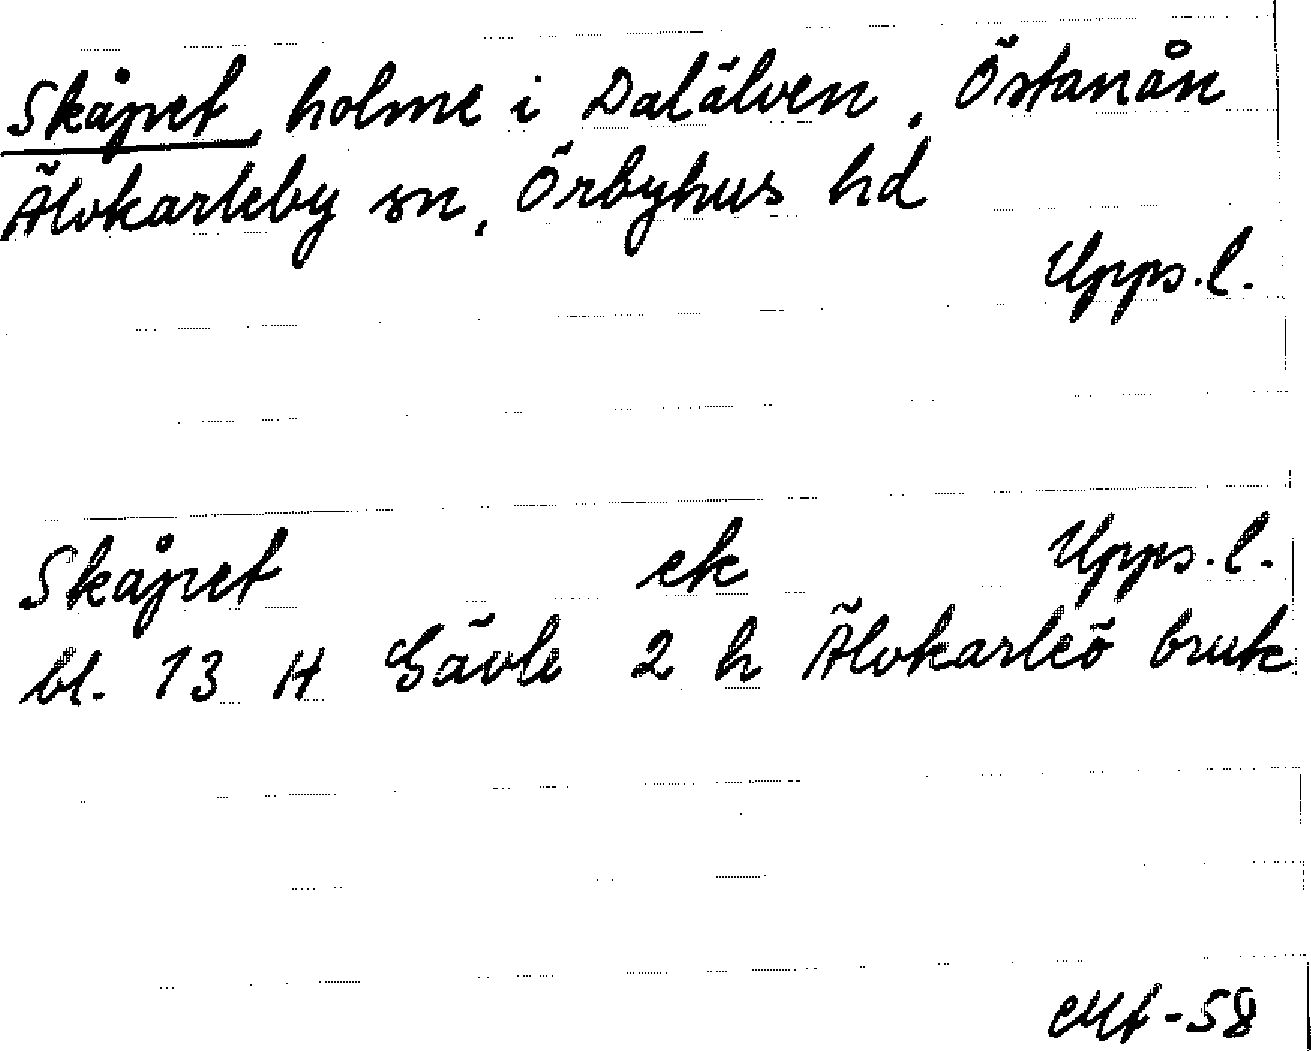 Skåpet, holme i Dalälven, Östanån
Älvkarleby sn, Örbyhus hd
Upps.l.
Skåpet ek Upps.l.
bl. 13 H Gävle 2 h Älvkarleö bruk
-58